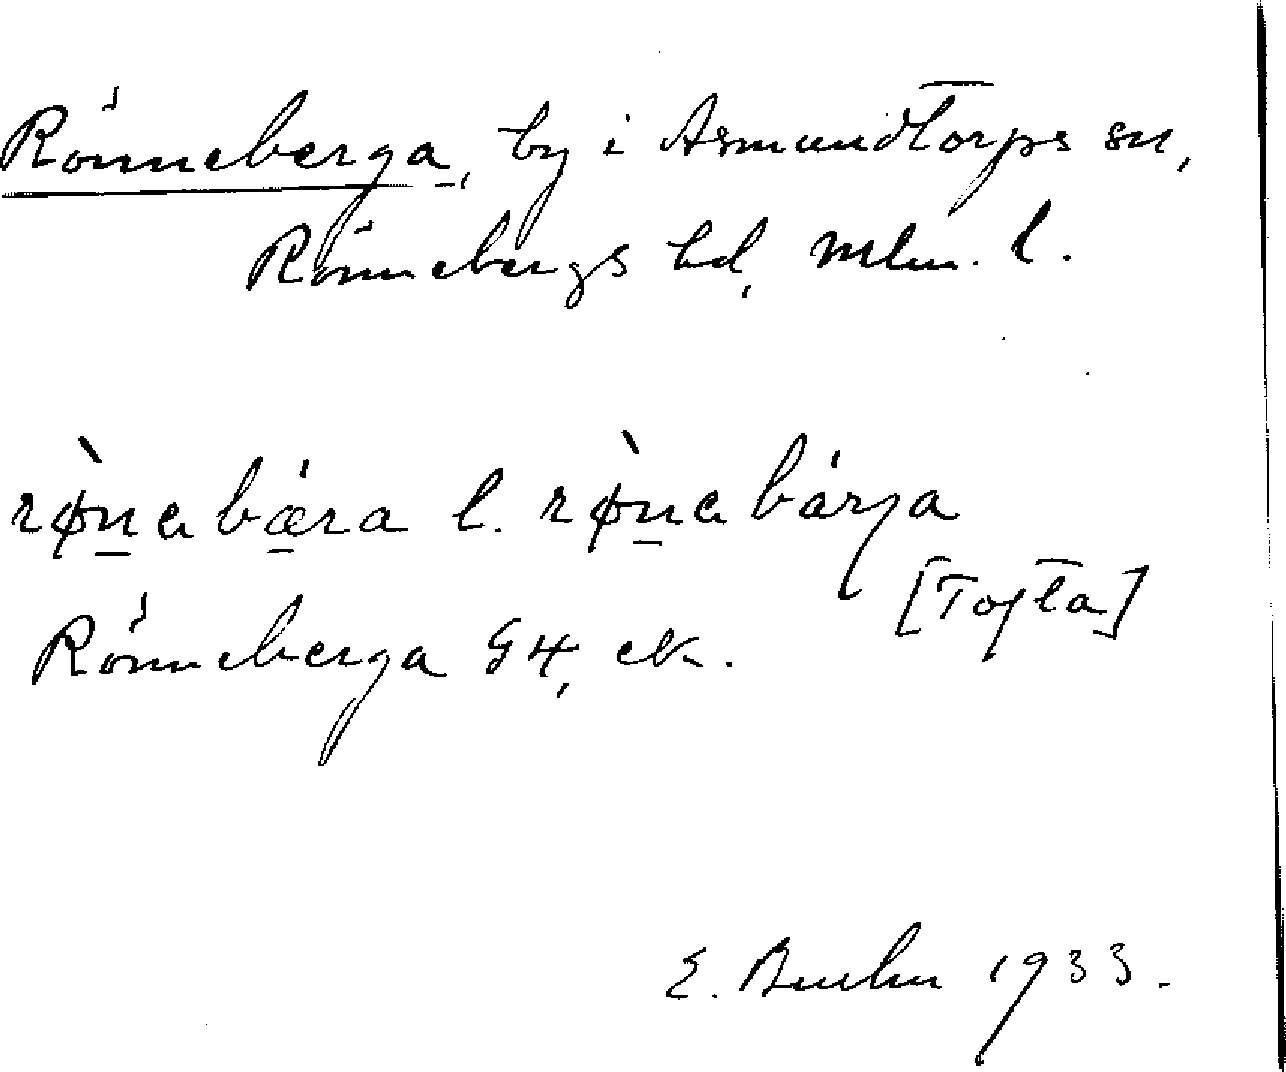 Rönneberga, by i Asmundtorps sn,
Rönnebergs hd, Mlm. l.
rø̀na bæ̀ra l. rø̀na bárja
[Tofta]
Rönneberga G4, ek.
E. 1933.